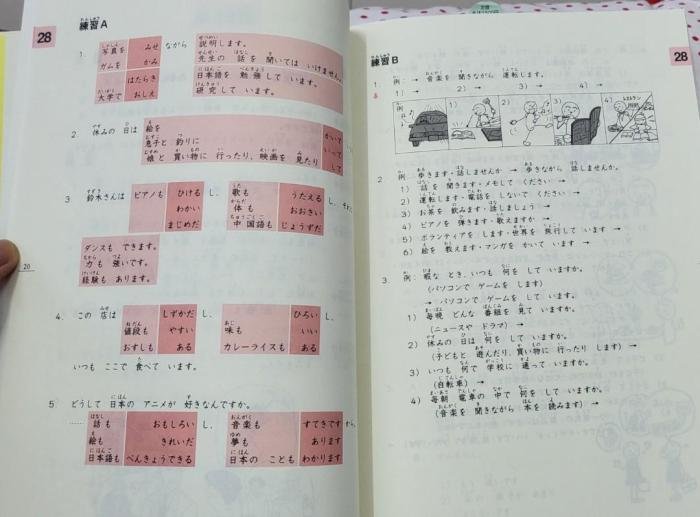 28
練習A
1. 写真を みせ ながら 説明します。
ガムを かみ 先生の 話を 聞いては いけません。
はたらき 日本語を 勉強して います。
大学で おしえ 研究して います。
2 休みの 日は 絵を かいて
息子と 釣りに いって
娘と 買い物に 行ったり、映画を 見たり して
3 鈴木さんは ピアノも ひける し、 歌も うたえる し、
わかい 体も おおきい
まじめだ 中国語も じょうずだ
ダンスも できます。
力も 強いです。
経験も あります。
4. この 店は しずかだ し、 ひろい し、
値段も やすい 味も いい
おすしも ある カレーライスも ある
いつも ここで 食べて います。
5 どうして 日本の アニメが 好きなんですか。
…… 話も おもしろい し、 音楽も すてきです から。
絵も きれいだ 夢も あります
日本語も べんきょうできる 日本の ことも わかります
20
練習B
28
1. 例 → 音楽を 聞きながら 運転します。
1) → 2) → 3) → 4) →
例 1) 2) 3) 4) レストラン
2 例 歩きます・話しませんか → 歩きながら 話しませんか。
1) 話を 聞きます・メモして ください →
2) 運転します・電話を しないで ください →
3) お茶を 飲みます・話しましょう →
4) ピアノを 弾きます・歌えますか →
5) ボランティアを します・世界を 旅行して います →
6) 絵を 教えます・マンガを かいて います →
3. 例: 暇な とき、いつも 何を して いますか。
(パソコンで ゲームを します)
→ パソコンで ゲームを して います。
1) 毎晩 どんな 番組を 見て いますか。
(ニュースや ドラマ) →
2) 休みの 日は 何を して いますか。
(子どもと 遊んだり、買い物に 行ったり します) →
3) いつも 何で 学校に 通って いますか。
(自転車) →
4) 毎朝 電車の 中で 何を して いますか。
(音楽を 聞きながら 本を 読みます) →